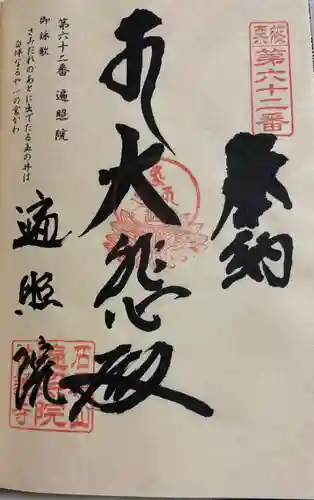 第六十二番
奉納
大悲殿
遍照院
第六十二番 遍照院
御詠歌
さみだれのあとに出でたる玉の井は
白坪なるや一の宮かわ